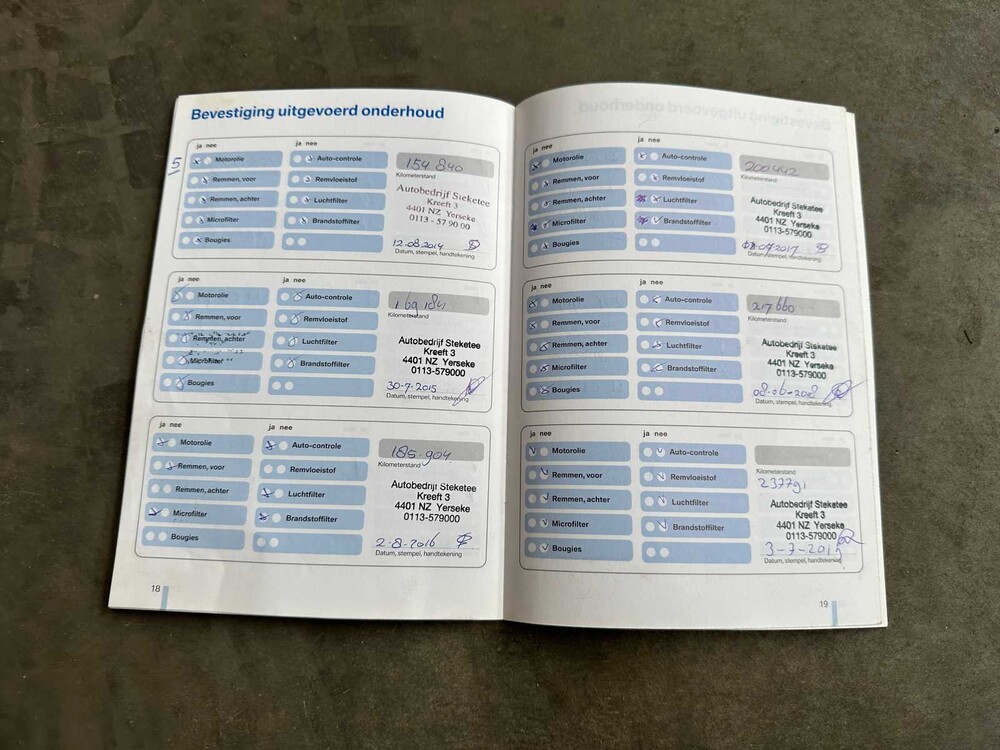 Bevestiging uitgevoerd onderhoud
5
ja nee ja nee
Motorolie Auto-controle 154 840
Remmen, voor Remvloeistof Kilometerstand
Remmen, achter Luchtfilter
Microfilter Brandstoffilter
Bougies
Autobedrijf Steketee
Kreeft 3
4401 NZ Yerseke
0113 - 57 90 00
12-08-2014
Datum, stempel, handtekening
ja nee ja nee
Motorolie Auto-controle 169 184
Remmen, voor Remvloeistof Kilometerstand
Remmen, achter Luchtfilter
Microfilter Brandstoffilter
Bougies
Autobedrijf Steketee
Kreeft 3
4401 NZ Yerseke
0113-579000
30-7-2015
Datum, stempel, handtekening
ja nee ja nee
Motorolie Auto-controle 185.904
Remmen, voor Remvloeistof Kilometerstand
Remmen, achter Luchtfilter
Microfilter Brandstoffilter
Bougies
Autobedrijf Steketee
Kreeft 3
4401 NZ Yerseke
0113-579000
2-8-2016
Datum, stempel, handtekening
18
ja nee ja nee
Motorolie Auto-controle 200442
Remmen, voor Remvloeistof Kilometerstand
Remmen, achter Luchtfilter
Microfilter Brandstoffilter
Bougies
Autobedrijf Steketee
Kreeft 3
4401 NZ Yerseke
0113-579000
Datum, stempel, handtekening
ja nee ja nee
Motorolie Auto-controle 217660
Remmen, voor Remvloeistof Kilometerstand
Remmen, achter Luchtfilter
Microfilter Brandstoffilter
Bougies
Autobedrijf Steketee
Kreeft 3
4401 NZ Yerseke
0113-579000
08-06-2018
Datum, stempel, handtekening
ja nee ja nee
Motorolie Auto-controle
Remmen, voor Remvloeistof Kilometerstand
Remmen, achter Luchtfilter 237791
Microfilter Brandstoffilter
Bougies
Autobedrijf Steketee
Kreeft 3
4401 NZ Yerseke
0113-579000
Datum, stempel, handtekening
19